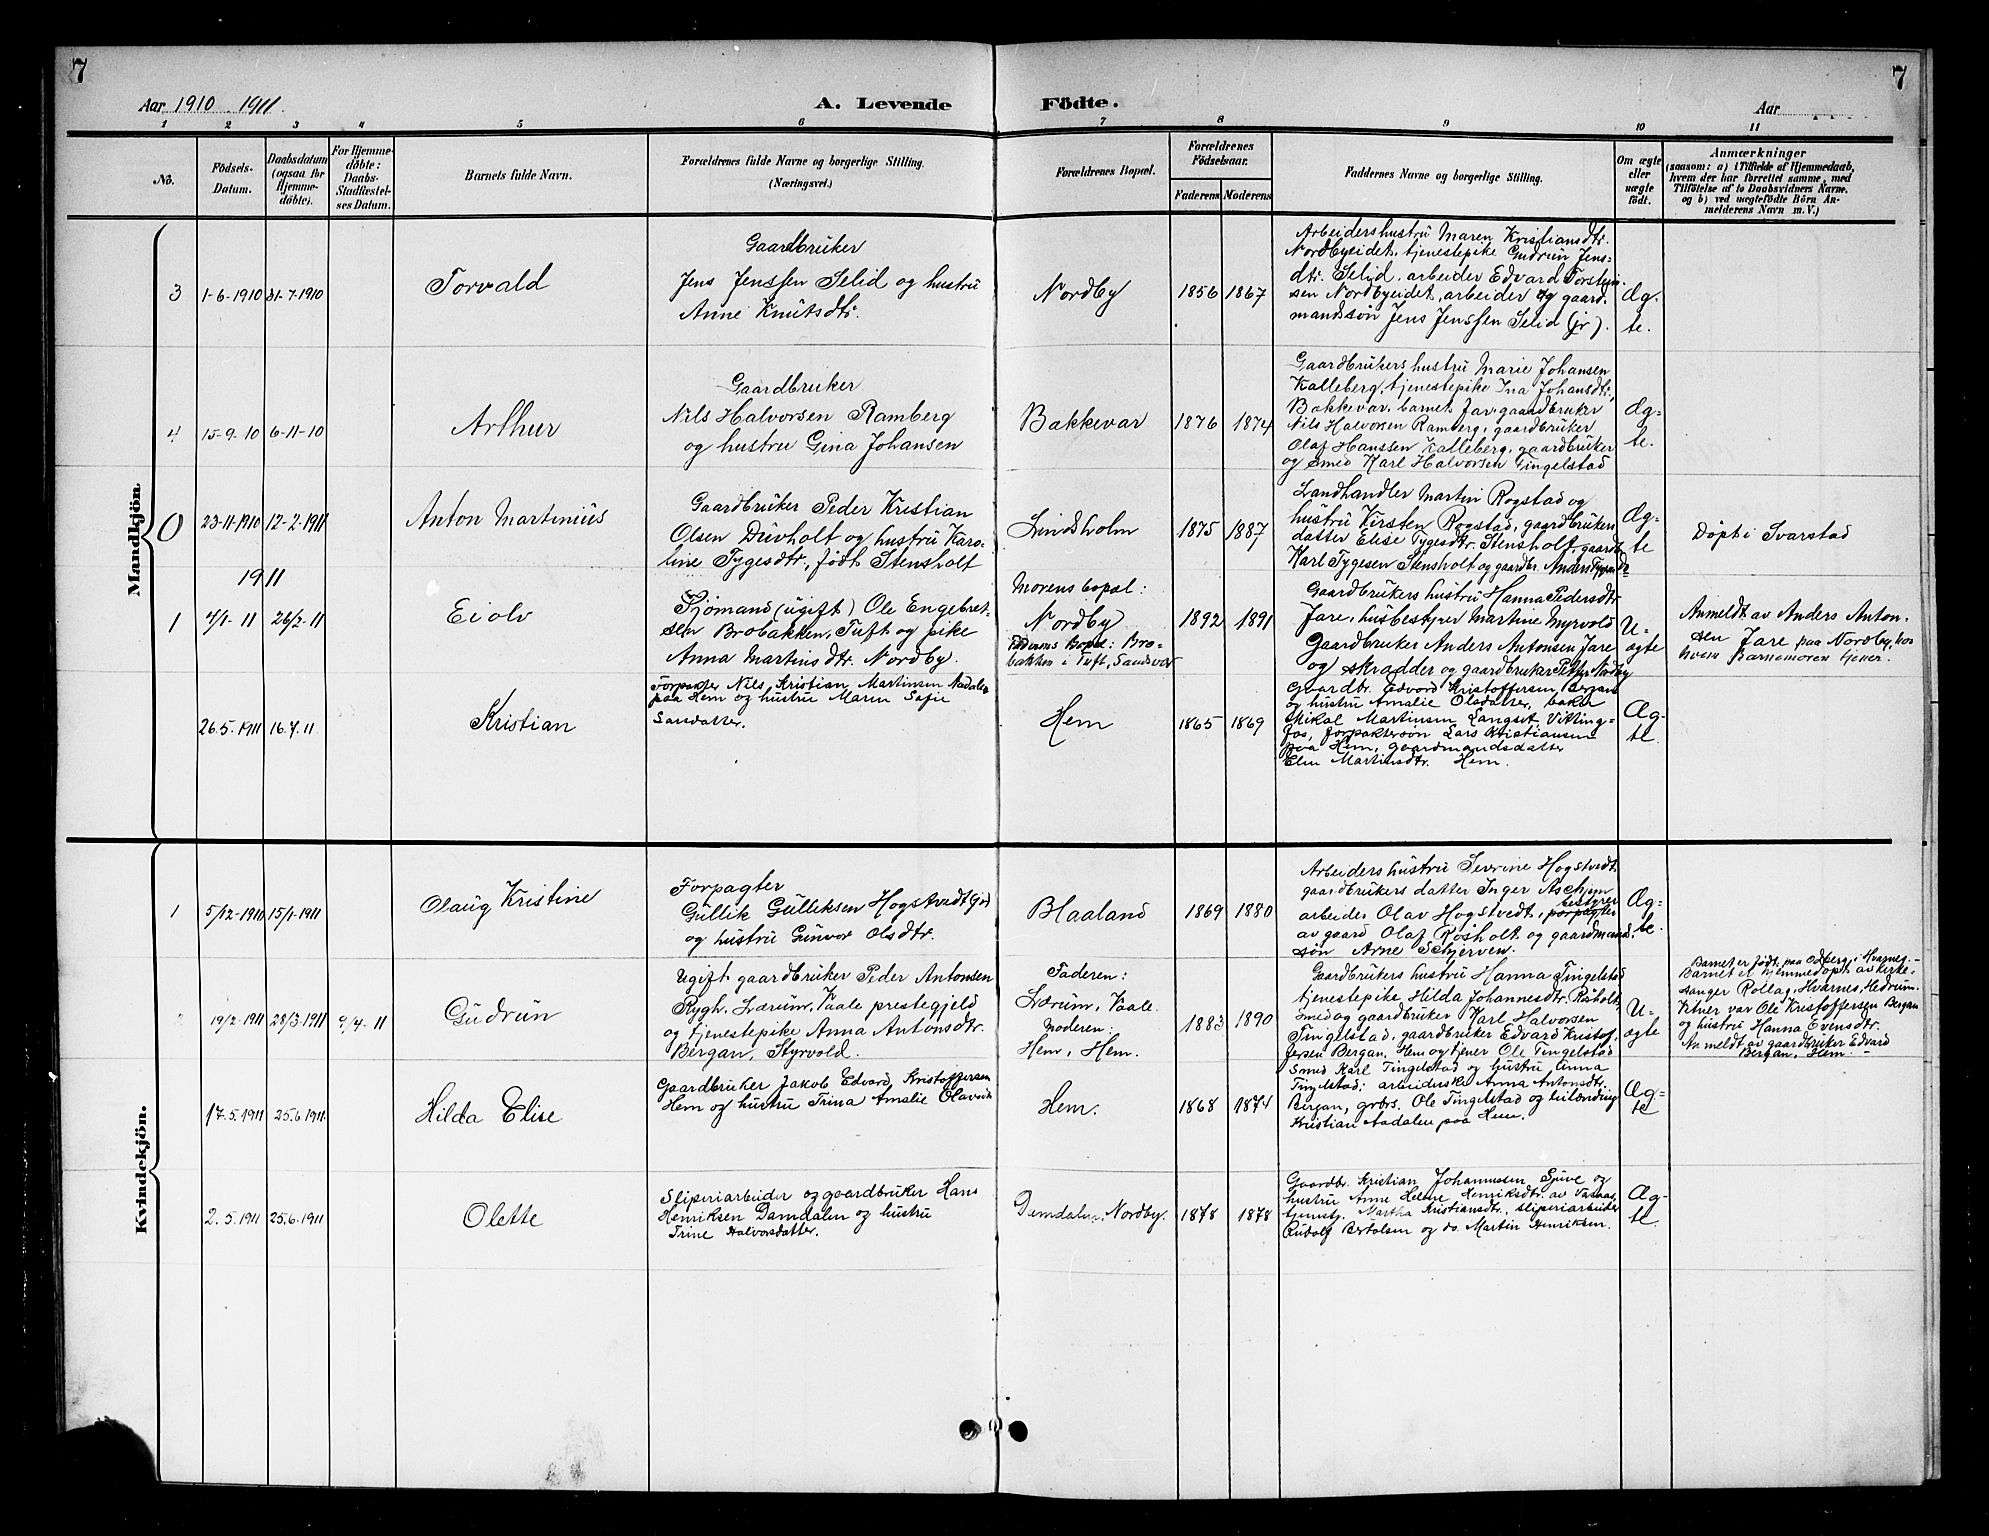 7
7
Aar 1910 1911.
A. Levende
Födte.
Aar
1 2 3 4 5 6 7 8 9 10 11
No.
Födsels-
Datum.
Daabsdatum
(ogsaa for
Hjemme-
döbte).
For Hjemme-
döbte:
Daabs-
Stadfestel-
ses Datum.
Barnets fulde Navn.
Forældrenes fulde Navne og borgerlige Stilling.
(Næringsvei.)
Forældrenes Bopæl.
Forældrenes
Födselsaar.
Faderens Moderens
Faddernes Navne og borgerlige Stilling.
Om ægte
eller
uægte
født.
Anmærkninger
(saasom: a) i Tilfælde af Hjemmedaab,
hvem der har forrettet samme, med
Tilföielse af to Daabsvidners Navne.
og b) ved uægtefödte Börn An-
melderens Navn m. V.)
Mandkjön
3
1-6-1910
31-7-1910
Torvald
Gaardbruker
Jens Jenssen Selid og hustru
Anne Knutsdtr.
Nordby
1856 1867
Arbeidershustru Maren Kristiansdtr.
Nordbyeidet, tjenestepike Gudrun Jens-
dtr. Selid, arbeider Edvard Torstein-
sen Nordbyeidet, arbeider og gaard-
mandssøn Jens Jenssen Selid (jr).
Æg-
te.
4
15-9-10
6-11-10
Arthur
Gaardbruker
Nils Halvorsen Ramberg
og hustru Gina Johansen
Bakkevar
1876 1874
Gaardbrukershustru Marie Johansen
Kalleberg, tjenestepike Ina Johansdtr,
Bakkevar, barnets far gaardbruker
Nils Halvorsen Ramberg, gaardbruker
Olaf Hanssen Kalleberg, gaardbruker
og smed Karl Halvorsen Tingelstad
Æg-
te.
0
23-11-1910
12-2-1911
Anton Martinius
Gaardbruker Peder Kristian
Olsen Duvholt og hustru Karo-
line Tygesdtr, født Stensholt
Lindsholm
1875 1887
Landhandler Martin Rogstad og
hustru Kirsten Rogstad, gaardbrukers
datter Elise Tygesdtr. Stensholt, gaardb.
Karl Tygesen Stensholt og gaardbr. Anders
Æg-
te
Døpt i Svarstad
1911
1
4/1-11
26/2-11
Eiolv
Sjømand (ugift) Ole Engebret-
sen Brobakken, Tuft og pike
Anna Martinsdtr. Nordby.
Morens bopæl:
Nordby
Faderens Bopæl: Bro-
bakken i Tuft, Sandsvær
1892 1891
Gaardbrukers hustru Hanna Pedersdtr
Jare, husbestyrer Martine Myrvold
Gaardbruker Anders Antonsen Jare
og skrædder og gaardbruker Petter Nordby
U-
ægte
Anmeldt av Anders Anton-
sen Jare paa Nordby, hos
hvem Barnemoren tjener.
26.5.1911
16.7.11
Kristian
Forpakter Nils Kristian Martinsen Aadalen
paa Hem og hustru Maren Sofie
Larsdatter.
Hem
1865 1869
Gaardbr. Edvard Kristoffersen Bergan
og hustru Amalie Olsdatter, baker
Mikal Martinsen Langset, Vitting-
fos, forpaktersøn Lars Kristiansen
paa Hem, gaardmandsdatter
Elen Martinsdtr. Hem.
Æg-
te.
Kvindekjön.
1
5/12-1910
15/1-1911
Olaug Kristine
Forpagter
Gullik Gulliksen Hogstvedt
og hustru Gunvor Olsdtr.
Blaaland
1869 1880
Arbeiders hustru Sevrine Hogstvedt
gaardbrukers datter Inger Aschjem
arbeider Olav Hogstvedt, forpagter bestyrer
av gaard Olaf Røsholt og gaardmand-
søn Arne Schjerven.
Æg-
te.
2
19/2-1911
28/3-1911
9/4-11
Gudrun
Ugift gaardbruker Peder Antonsen
Rygh, Lærum, Vaale prestegjeld
og tjenestepike Anna Antonsdtr.
Bergan, Styrvold.
Faderen:
Lærum, Vaale.
Moderen:
Hem, Hem.
1883 1890
Gaardbrukers hustru Hanna Tingelstad
tjenestepike Hilda Johannesdtr. Røsholt,
Smed og gaardbruker Karl Halvorsen
Tingelstad, gaardbruker Edvard Kristof-
fersen Bergan, Hem og tjener Ole Tingelstad
U-
ægte
Barnet er født paa Odberg i Hvarnes.-
Barnet et hjemmedøpt av kirke-
sanger Rollag, Hvarnes, Hedrum.
Vitner var Ole Kristoffersen Bergan
og hustru Hanna Evensdtr.
Anmeldt av gaardbruker Edvard
Bergan, Hem.-
17.5.1911
25.6.1911
Hilda Elise
Gaardbruker Jakob Edvard Kristoffersen
Hem og hustru Trina Amalie Olavsdtr
Hem.
1868 1874
Smed Karl Tingelstad og hustru Anna
Tingelstad; arbeiderske Anna Antonsdtr.
Bergan, grbrs. Ole Tingelstad og
Kristian Aadalen paa Hem.
Æg-
te
2.5.1911
25.6.1911
Olette
Sliperiarbeider og gaardbruker Hans
Henriksen Damdalen og hustru
Trine Halvorsdatter.
Damdalen, Nordby.
1878 1878
Gaardbr. Kristian Johannessen Sjuve og
hustru Anne Helene Henriksdtr. av Vasaas,
tjenestp. Martha Kristiansdtr., sliperiarbeider
Rudolf Bertolsen og do. Martin Henriksen.
Æg-
te.